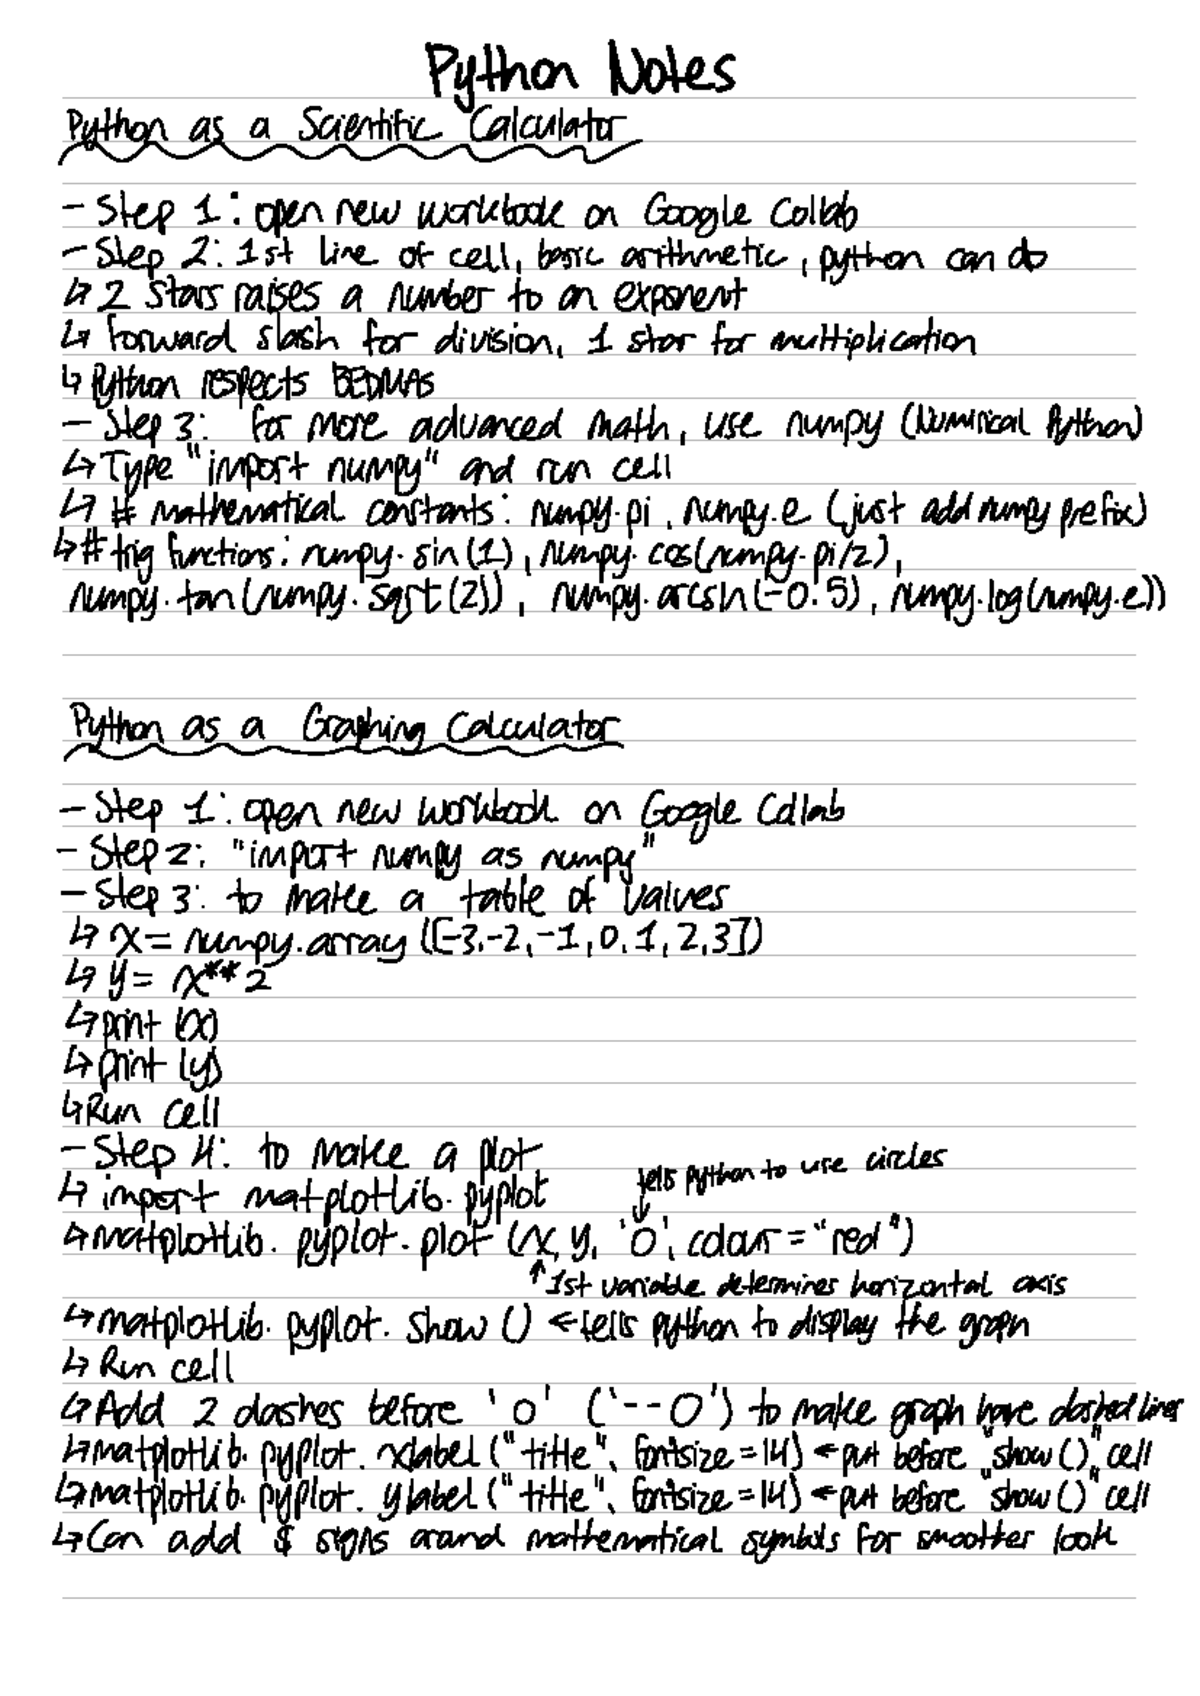 Python Notes
Python as a Scientific Calculator
- Step 1: open new workbook on Google Collab
- Step 2: 1st line of cell, basic arithmetic, python can do
↳ 2 stars raises a number to an exponent
↳ Forward slash for division, 1 star for multiplication
↳ Python respects BEDMAS
- Step 3: For more advanced math, use numpy (Numirical Python)
↳ Type "import numpy" and run cell
↳ # mathematical constants: numpy.pi, numpy.e (just add numpy prefix)
↳ # trig functions: numpy.sin(1), numpy.cos(numpy.pi/2),
numpy.tan(numpy.sqrt(2)), numpy.arcsin(-0.5), numpy.log(numpy.e))
Python as a Graphing Calculator
- Step 1: open new workbook on Google Collab
- Step 2: "import numpy as numpy"
- Step 3: to make a table of values
↳ x = numpy.array([-3,-2,-1,0,1,2,3])
↳ y = x**2
↳ print (x)
↳ print (y)
↳ Run cell
- Step 4: to make a plot
tells python to use circles
↳ import matplotlib.pyplot
↳ matplotlib.pyplot.plot (x, y, 'o', colour = "red")
↑ 1st variable determines horizontal axis
↳ matplotlib.pyplot.show () ← tells python to display the graph
↳ Run cell
↳ Add 2 dashes before 'o' ('--o') to make graph have dashed lines
↳ matplotlib.pyplot.xlabel ("title", fontsize = 14) ← put before "show ()" cell
↳ matplotlib.pyplot.ylabel ("title", fontsize = 14) ← put before "show ()" cell
↳ Can add $ signs around mathematical symbols for smoother look